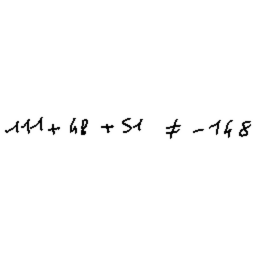 111 + 48 + 51 ≠ -148